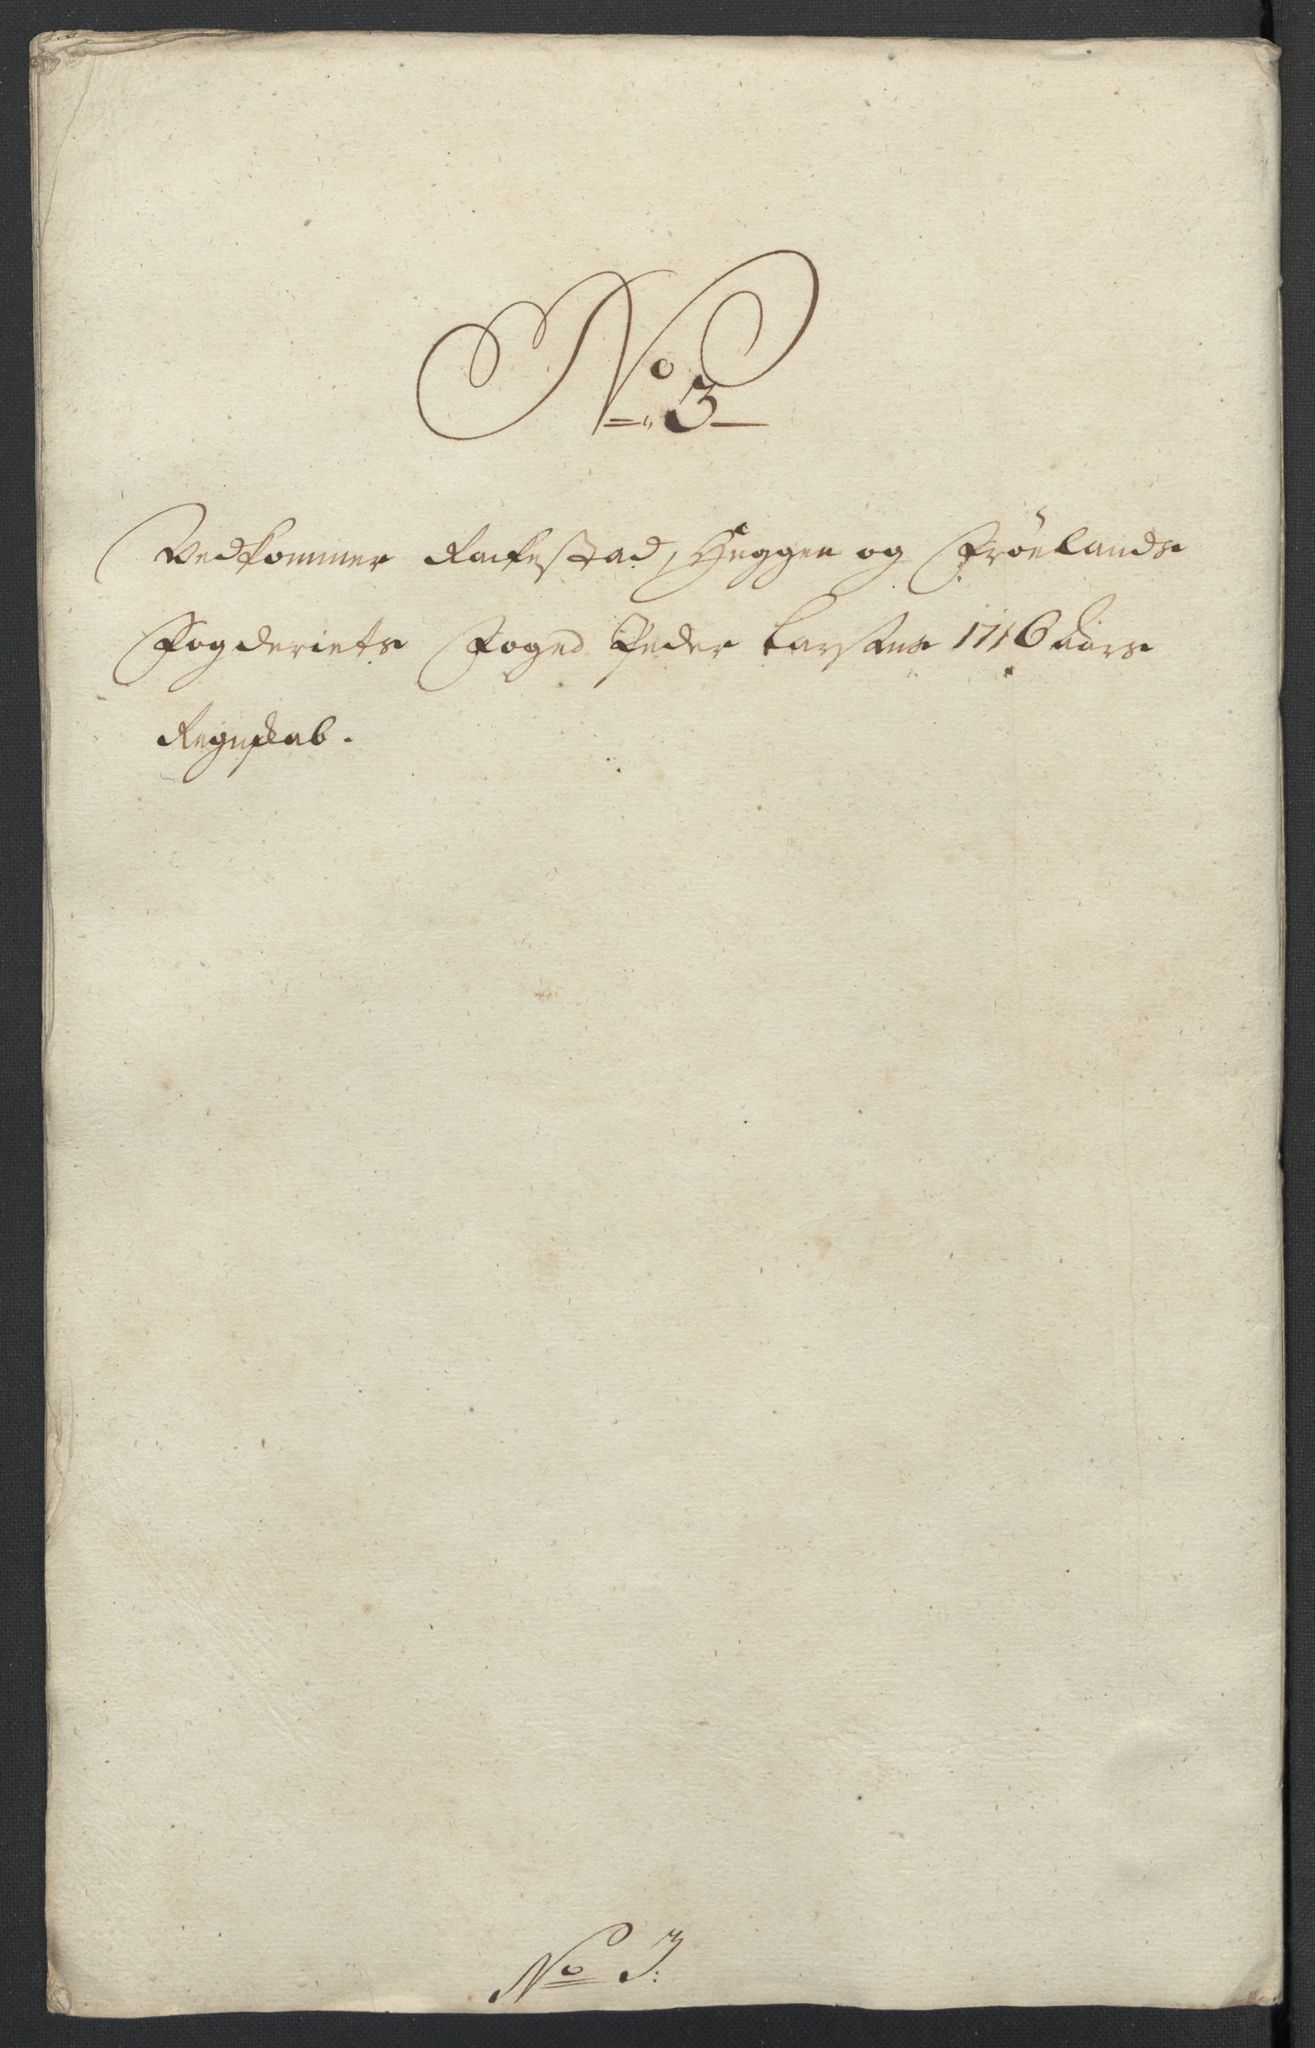 No 3
Vedkommer Rachestad, Heggen og Frölands
Fogderiets Foged Peder Larsens 1716 Aars
Regnskab.
No 3.